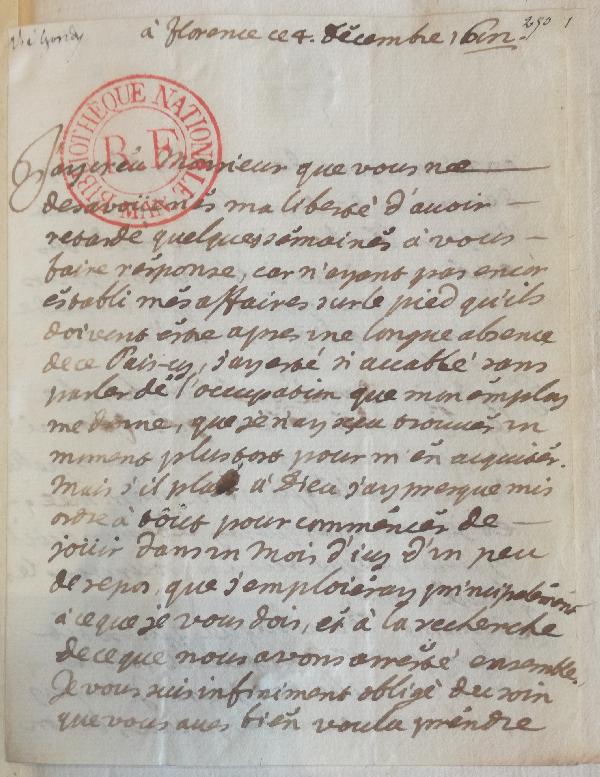 250 1
à Florence ce 4. Décembre 16
BIBLIOTHÈQUE NATIONALE MAN.
R F
J'ay creu Monsieur que vous ne
desavoüeriés ma liberté d'avoir
retardé quelques sémainés à vous
faire résponse, car n'ayant pas encor
éstabli més affaires sur le pied qu'ils
doivent éstre apres une longue absence
de ce Païs-cy, j'ay esté si accablé sans
parler dé l'occupation que mon émploy
me donne, que je n'ay sçeu trouvér un
moment plustost pour m'én acquitér.
Mais s'il plait à Dieu j'ay presque mis
ordre à tout pour commencér de
joüir dans un Mois d'icy d'un peu
de repos, que j'emploiéray principalémént
à ce que je vous dois, ét à la recherche
de ce que nous avons arresté énsemble.
Je vous suis infiniment obligé du soin
que vous avés bién voulu préndre